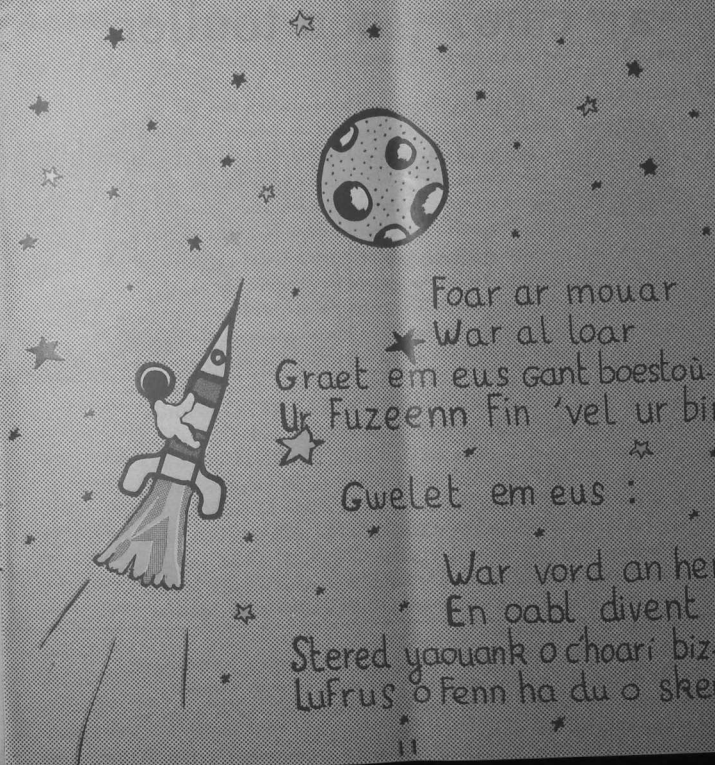 Foar ar mouar
War al loar
Graet em eus gant boestoù-
Ur Fuzeenn Fin 'vel ur
Gwelet em eus :
War vord an
En oabl divent
Stered yaouank o c'hoari
Lufrus o Fenn ha du o
11